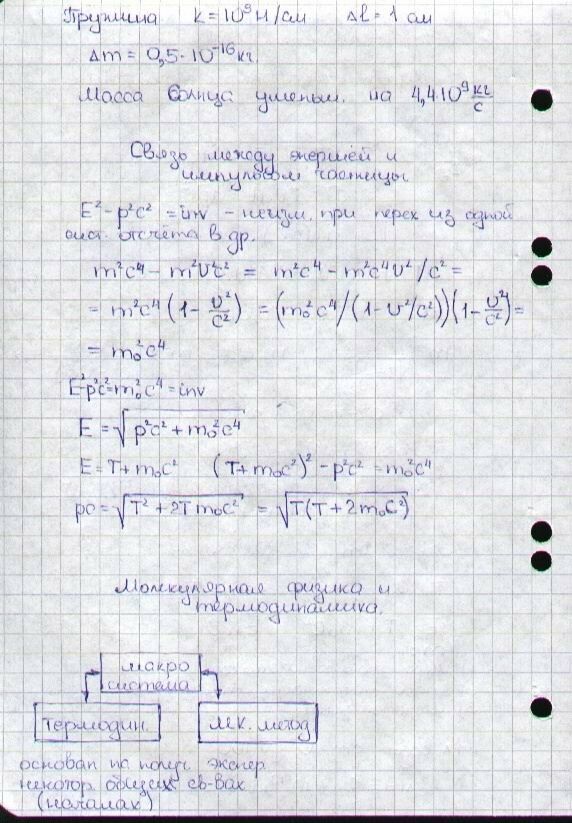 Пружина k = 10³ Н/см Δl = 1 см
Δm = 0,5·10⁻¹⁶ кг.
Масса Солнца уменьш. на 4,4·10⁹ кг/с
Связь между энергией и
импульсом частицы
E² - p²c² = inv - неизм. при перех из одной
сист. отсчёта в др.
m²c⁴ - m²υ²c² = m²c⁴ - m²c⁴υ²/c² =
= m²c⁴ (1 - υ²/c²) = (m₀²c⁴/(1-υ²/c²))(1 - υ²/c²) =
= m₀²c⁴
E²-p²c²=m₀²c⁴=inv
E = √(p²c² + m₀²c⁴)
E = T + m₀c² (T + m₀c²)² - p²c² = m₀²c⁴
pc = √(T² + 2Tm₀c²) = √(T(T + 2m₀c²))
Молекулярная физика и
термодинамика.
макро
система
термодин. мк. метод
основан на экспер
некотор. общих св-вах
(началах)